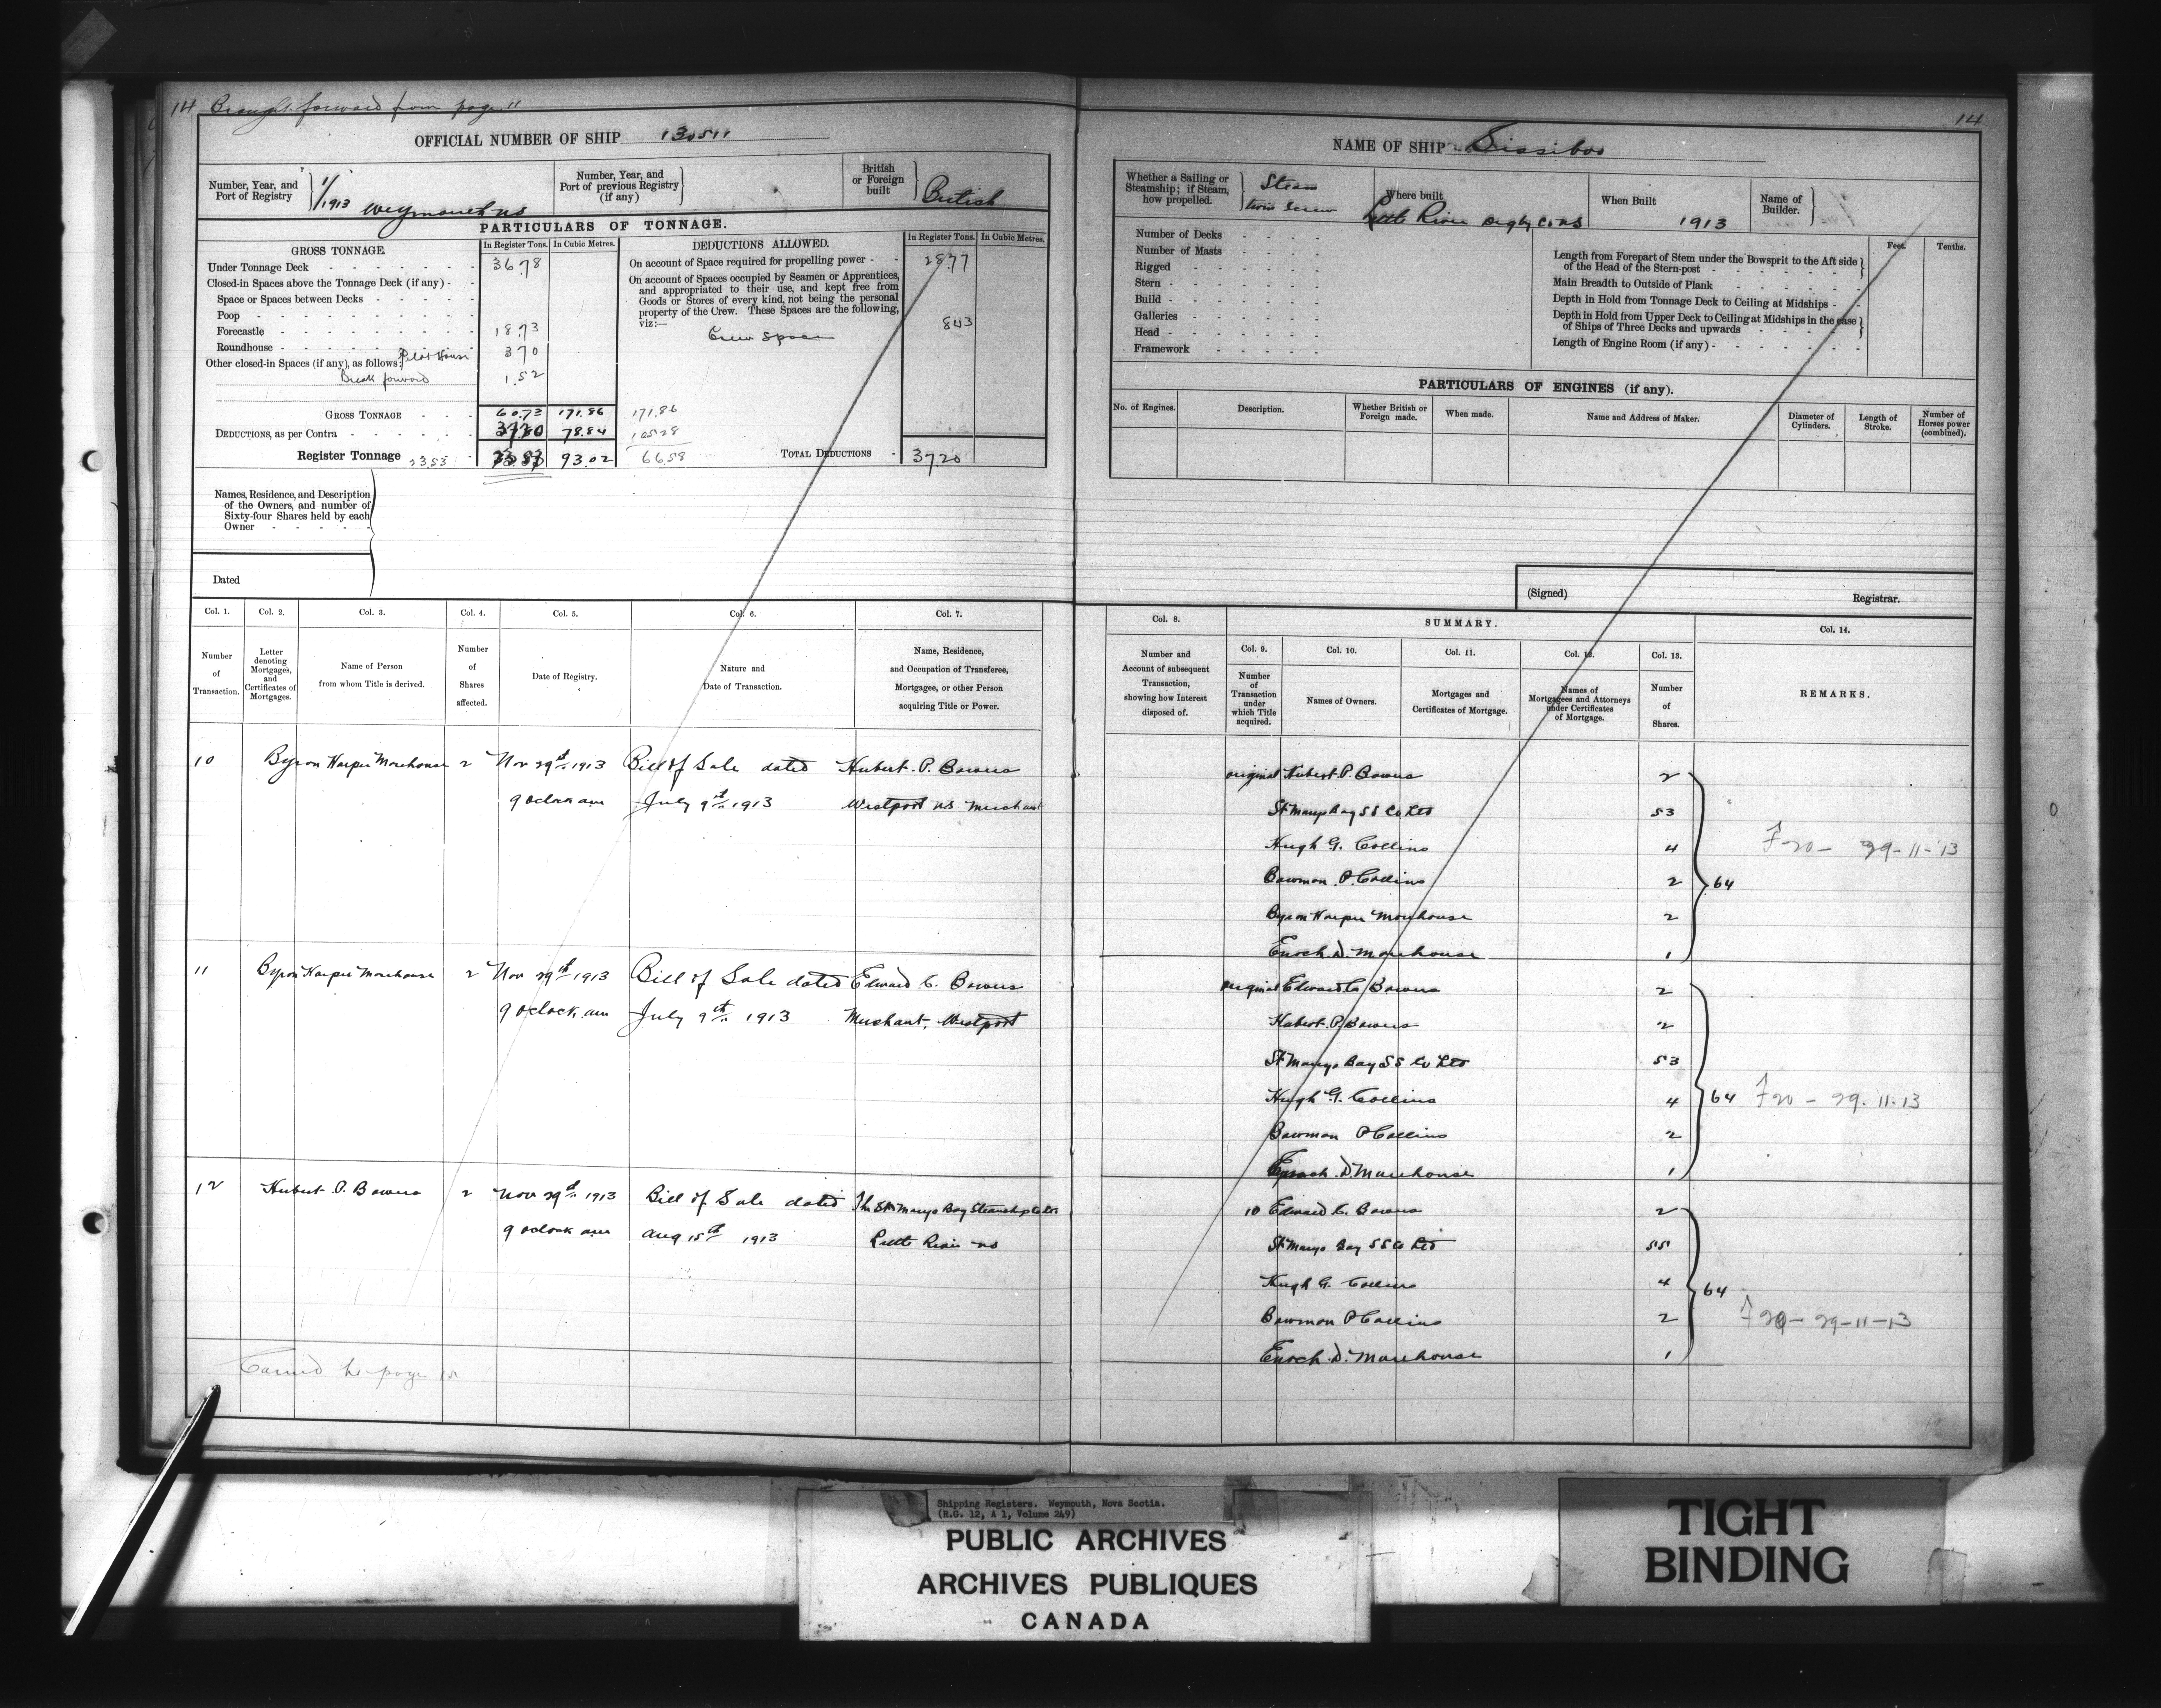 14 Brought forward from page 11
14
OFFICIAL NUMBER OF SHIP 130511
Number, Year, and Port of Registry 1/1913 Weymouth NS
Number, Year, and Port of previous Registry (if any)
British or Foreign built British
PARTICULARS OF TONNAGE.
GROSS TONNAGE. In Register Tons. In Cubic Metres.
Under Tonnage Deck 36.78
Closed-in Spaces above the Tonnage Deck (if any)
Space or Spaces between Decks
Poop
Forecastle 18.73
Roundhouse 3.70
Other closed-in Spaces (if any), as follows: Pilot House
Break forward 1.52
GROSS TONNAGE 60.73 171.86 171.86
DEDUCTIONS, as per Contra 78.84 105.28
Register Tonnage 23.53 93.02 66.58
DEDUCTIONS ALLOWED. In Register Tons. In Cubic Metres.
On account of Space required for propelling power 28.77
On account of Spaces occupied by Seamen or Apprentices,
and appropriated to their use, and kept free from
Goods or Stores of every kind, not being the personal
property of the Crew. These Spaces are the following,
viz:— 8.43
Crew Space
TOTAL DEDUCTIONS 37.20
Names, Residence, and Description
of the Owners, and number of
Sixty-four Shares held by each
Owner
Dated
NAME OF SHIP Sissiboo
Whether a Sailing or Steamship; if Steam, how propelled. Steam twin Screw
Where built Little River Digby Co NS
When Built 1913
Name of Builder.
Number of Decks
Number of Masts
Rigged
Stern
Build
Galleries
Head
Framework
Feet. Tenths.
Length from Forepart of Stem under the Bowsprit to the Aft side
of the Head of the Stern-post
Main Breadth to Outside of Plank
Depth in Hold from Tonnage Deck to Ceiling at Midships
Depth in Hold from Upper Deck to Ceiling at Midships in the case
of Ships of Three Decks and upwards
Length of Engine Room (if any)
PARTICULARS OF ENGINES (if any).
No. of Engines. Description. Whether British or Foreign made. When made. Name and Address of Maker. Diameter of Cylinders. Length of Stroke. Number of Horses power (combined).
(Signed) Registrar.
Col. 1. Col. 2. Col. 3. Col. 4. Col. 5. Col. 6. Col. 7.
Number of Transaction.
Letter denoting Mortgages, and Certificates of Mortgages.
Name of Person from whom Title is derived.
Number of Shares affected.
Date of Registry.
Nature and Date of Transaction.
Name, Residence, and Occupation of Transferee, Mortgagee, or other Person acquiring Title or Power.
Col. 8. SUMMARY. Col. 14.
Col. 9. Col. 10. Col. 11. Col. 12. Col. 13.
Number and Account of subsequent Transaction, showing how Interest disposed of.
Number of Transaction under which Title acquired.
Names of Owners.
Mortgages and Certificates of Mortgage.
Names of Mortgagees and Attorneys under Certificates of Mortgage.
Number of Shares.
REMARKS.
10 Byron Harper Morehouse 2 Nov 29th 1913 Bill of Sale dated Hubert P. Bowers
9 oclock am July 9th 1913 Westport NS Merchant
original Hubert P. Bowers 2
St Marys Bay SS Co Ltd 53
Hugh G. Collins 4
Bowman P. Collins 2
Byron Harper Morehouse 2
Enoch D. Morehouse 1
64 F20 – 29-11-13
11 Byron Harper Morehouse 2 Nov 29th 1913 Bill of Sale dated Edward C. Bowers
9 oclock am July 9th 1913 Merchant, Westport
original Edward C. Bowers 2
Hubert P. Bowers 2
St Marys Bay SS Co Ltd 53
Hugh G. Collins 4
Bowman P Collins 2
Enoch D. Morehouse 1
64 F20 – 29.11.13
12 Hubert P. Bowers 2 Nov 29th 1913 Bill of Sale dated The St Marys Bay Steamship Co Ltd
9 oclock am Aug 15th 1913 Little River NS
10 Edward C. Bowers 2
St Marys Bay SS Co Ltd 55
Hugh G. Collins 4
Bowman P Collins 2
Enoch D. Morehouse 1
64 F20 – 29-11-13
Carried to page
Shipping Registers. Weymouth, Nova Scotia.
(R.G. 12, A 1, Volume 249)
PUBLIC ARCHIVES
ARCHIVES PUBLIQUES
CANADA
TIGHT
BINDING